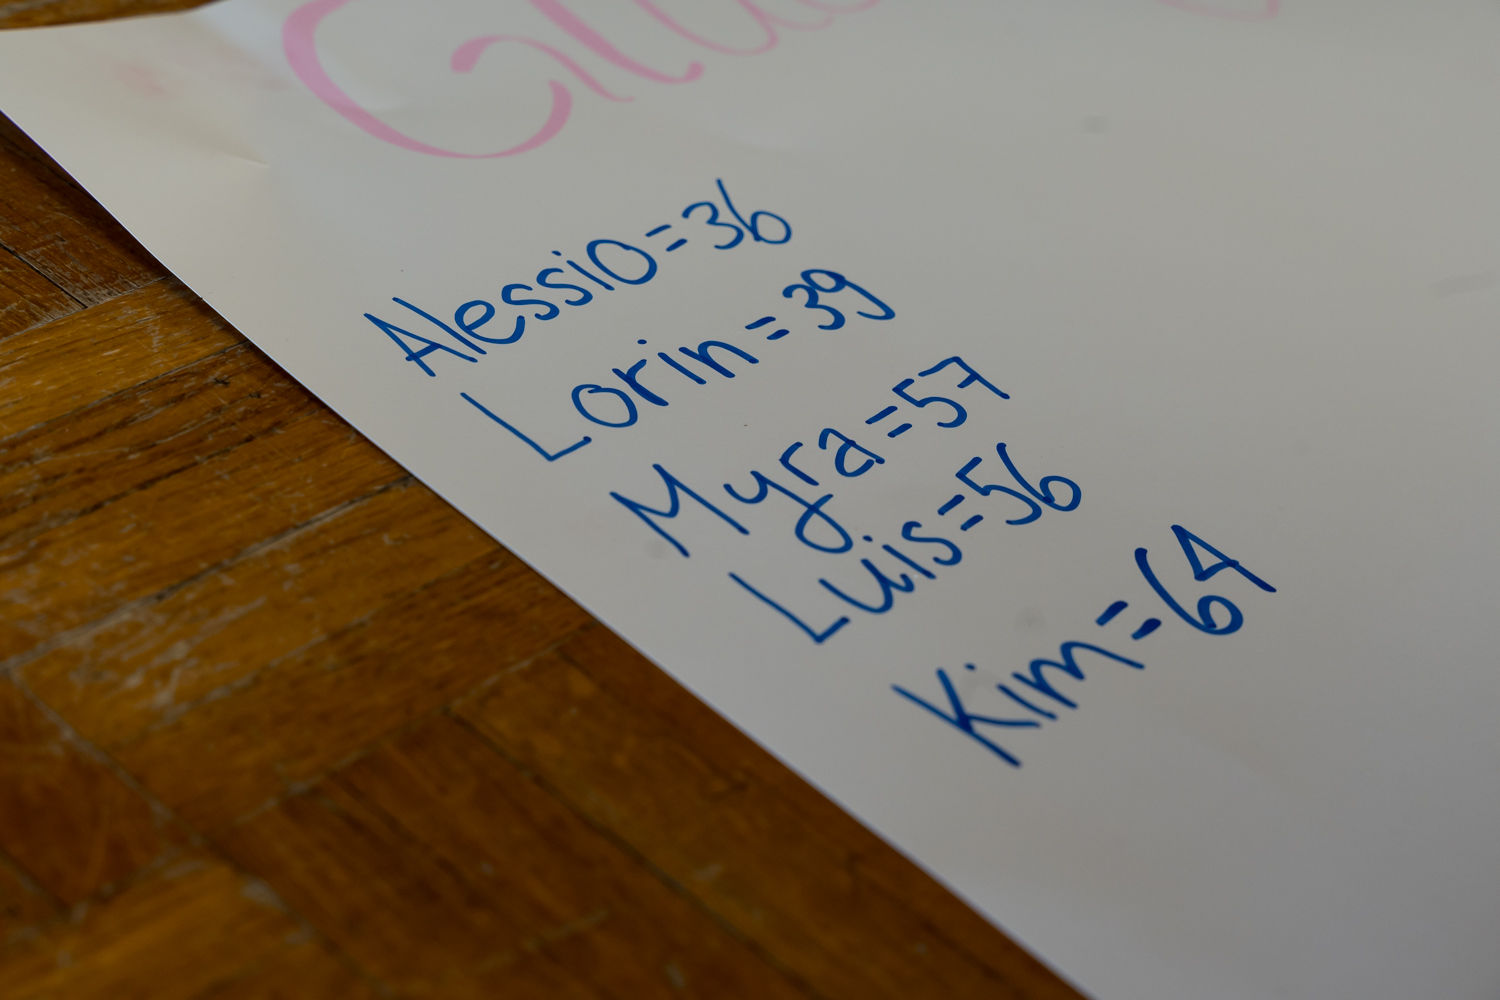 Alessio=36
Lorin=39
Myra=57
Luis=56
Kim=64